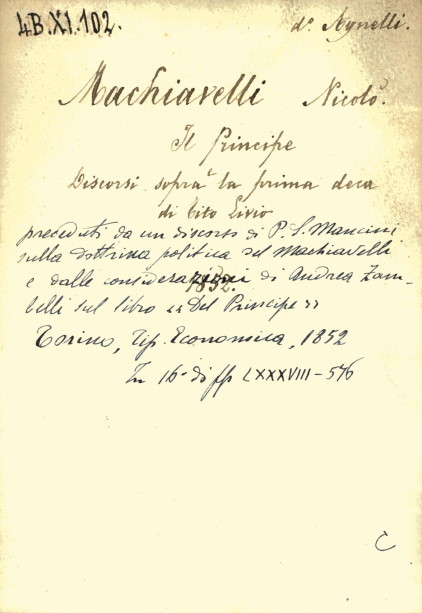 4B.XI.102.
d.º Agnelli.
Machiavelli Nicolò.
Il Principe
Discorsi sopra la prima deca
di Tito Livio
preceduti da un discorso di P. S. Mancini
sulla dottrina politica del Machiavelli
e dalle considerazioni di Andrea Zam-
1852.
belli sul libro «Del Principe»
Torino, Tip. Economica, 1852
In 16º di pp LXXXVIII-576
C